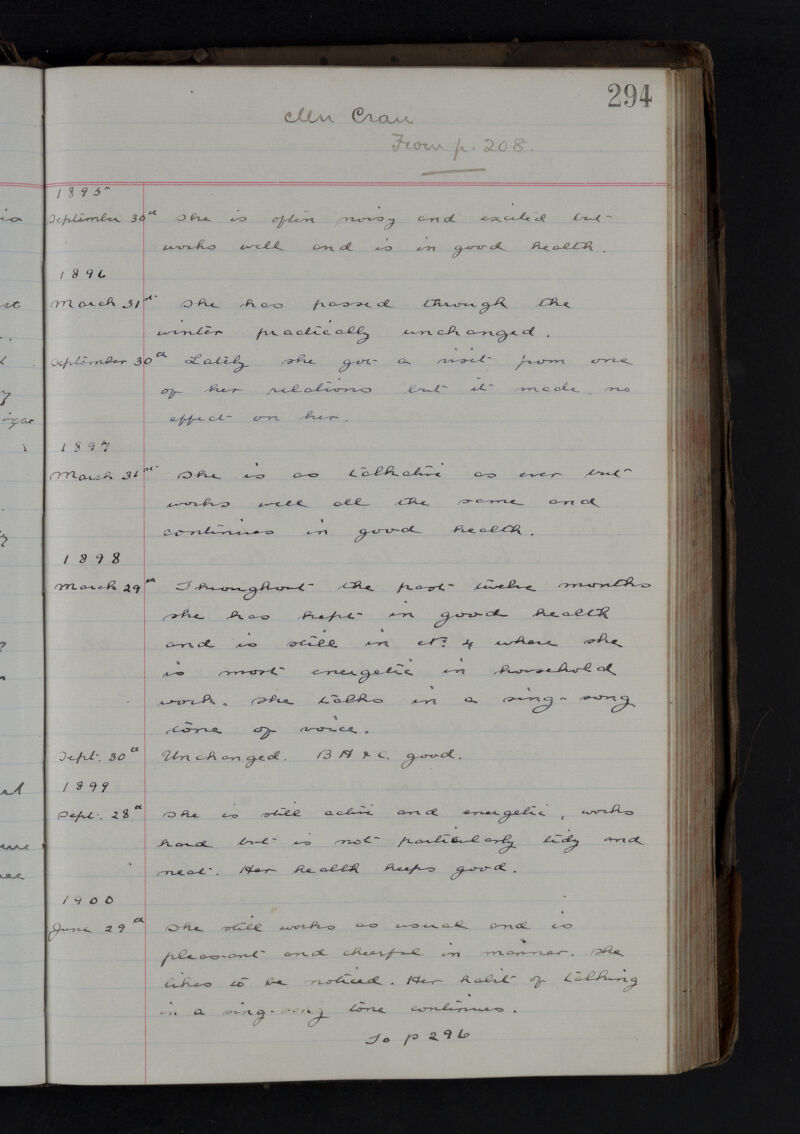 294
Mrs Cran
From p. 208.
1895
September 30th She is often noisy and excited but
works well and is in good health.
1896
March 31st She has passed through the
winter practically unchanged.
September 30th Lately she got a visit from one
of her relations but it made no
effect on her.
1897
March 31st She is as talkative as ever but
works well all the same and
continues in good health.
1898
March 29th Throughout the past twelve months
she has kept in good health
and is still in No. 4 where she
is most energetic in household
work. She talks in a sing-song
tone of voice.
Sept. 30th Unchanged. B H & C. good.
1899
Sept. 28th She is still active and energetic, works
hard but is not particularly tidy and
neat. Her health keeps good.
1900
June 29th She still works as usual and is
pleasant and cheerful in manner. She
likes to be noticed. Her habit of talking
in a sing-song tone continues.
To p 296